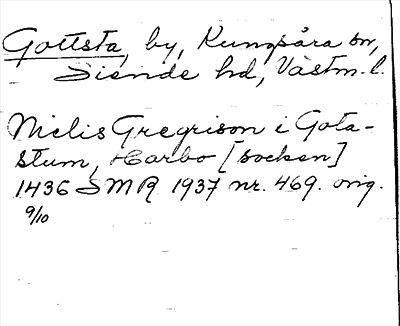 Gottsta, by, Kungsåra sn,
Siende hd, Västm. l.
Nielis Gregrison i Gota-
stum, Harbo [socken]
1436 SMR 1937 nr. 469. orig.
9/10